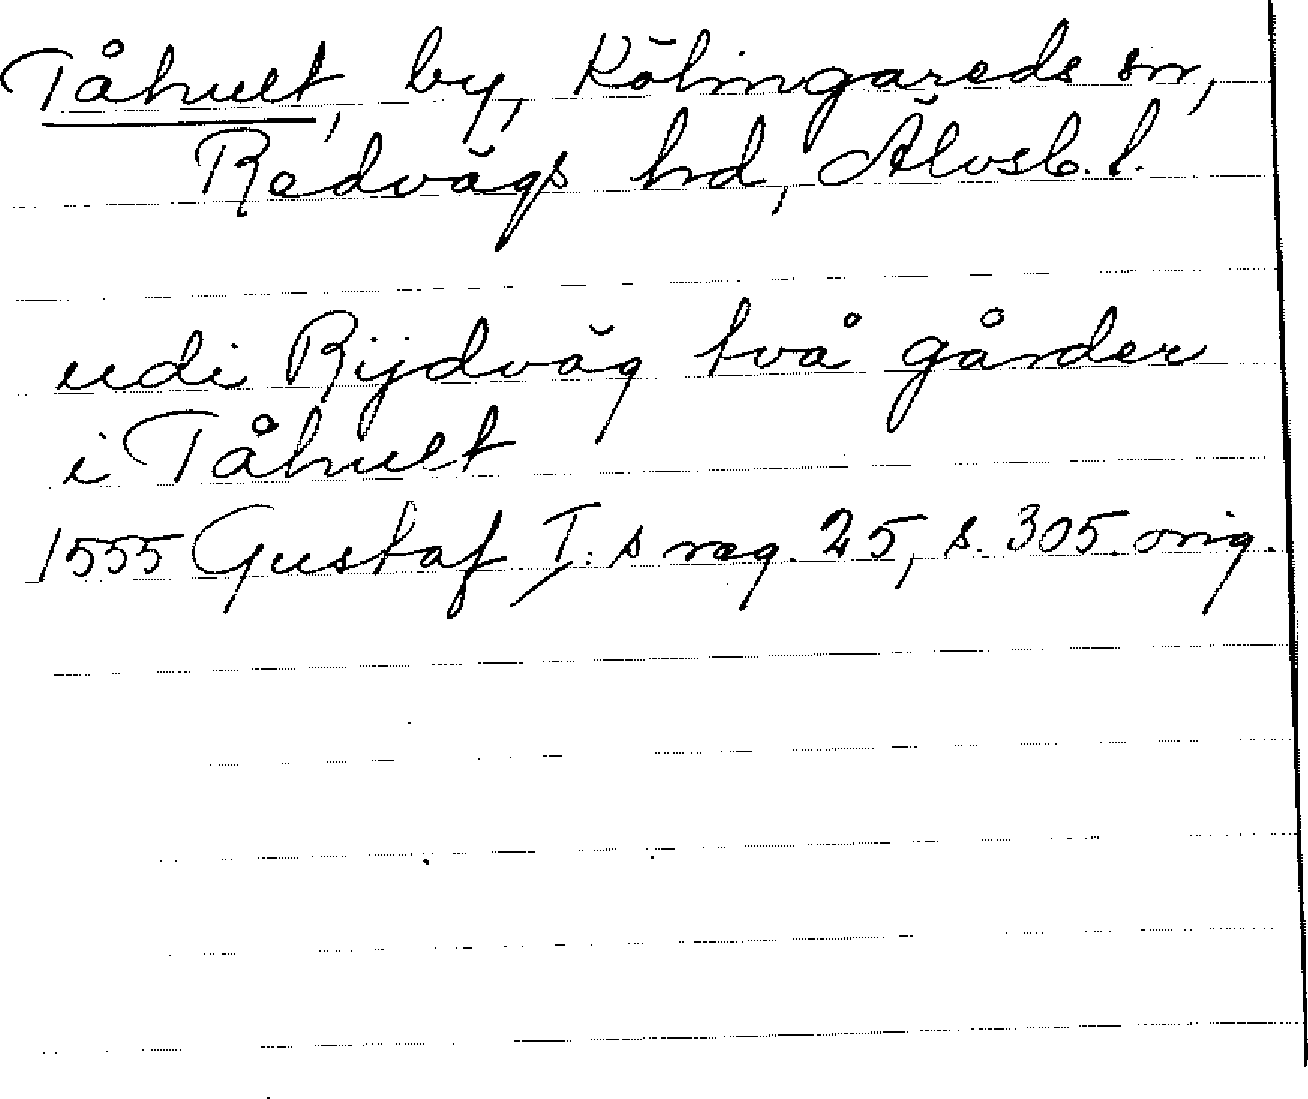 Tåhult, by, Kölingareds sn,
Redvägs hd, Älvsb. l.
udi Rijdväg två gårder
i Tåhult
1555 Gustaf I:s reg. 25, s. 305. orig.